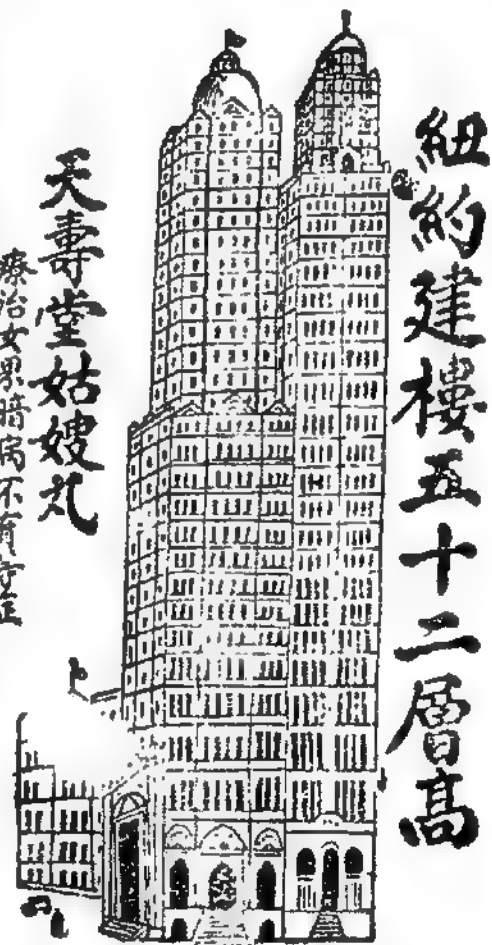 紐約建樓五十二層高
天壽堂姑嫂丸
療治女界暗病不育